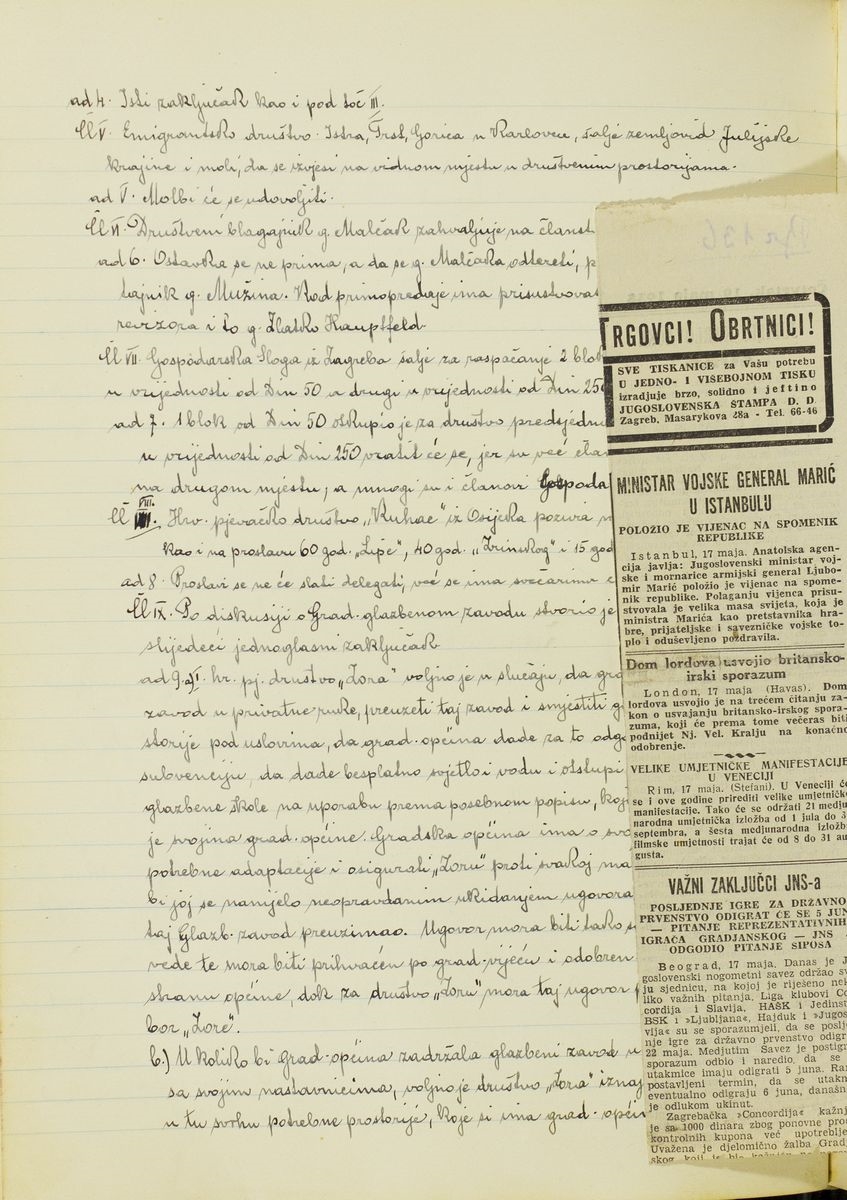 ad 4. Isti zaključak kao i pod toč III.
Čl V. Emigrantsko društvo Istra, Trst, Gorica u Karlovcu, šalje zemljovid Julijske
krajine i moli, da se izvjesi na vidnom mjestu u društvenim prostorijama.
ad V. Molbi će se udovoljiti.
Čl VI. Društveni blagajnik g. Malčak zahvaljuje na članst
ad 6. Ostavka se ne prima, a da se g. Malčaka odtereti, p
tajnik g. Mužina. Kod primopredaje ima prisustvova
revizora i to g. Zlatko Hauptfeld
Čl VII. Gospodarska Sloga iz Zagreba šalje za raspačanje 2 blok
u vrijednosti od Din 50 a drugi u vrijednosti od Din 250
ad 7. 1 blok od Din 50 otkupio je za društvo predsjedn
u vrijednosti od Din 250 vratit će se, jer su već član
na drugom mjestu, a mnogi su i članovi Gospoda
Čl VIII. Hrv. pjevačko društvo „Kuhač" iz Osijeka poziva n
kao i na proslavu 60 god. „Lipe", 40 god. „Zrinskog" i 15 god
ad 8. Proslavi se ne će slati delegati, već se ima svečarima č
Čl IX. Po diskusiji o Grad. glazbenom zavodu stvorio je
slijedeći jednoglasni zaključak
ad 9. a) I. hr. pj. društvo „Zora" voljno je u slučaju, da gra
zavod u privatne ruke, preuzeti taj zavod i smjestiti g
storije pod uslovima, da grad. općina dade za to odgo
subvenciju, da dade besplatno svjetlo i vodu i otstupi
glazbene škole na uporabu prema posebnom popisu, koji
je svojina grad. općine. Gradska općina ima o svo
potrebne adaptacije i osigurati „Zoru" proti svakoj ma
bi joj se nanijelo neopravdanim ukidanjem ugovora
taj Glazb. zavod preuzimao. Ugovor mora biti tako s
vede te mora biti prihvaćen po grad. vijeću i odobren
stranu općine, dok za društvo „Zoru" mora taj ugovor
bor „Zore".
b.) U koliko bi grad. općina zadržala glazbeni zavod u
sa svojim nastavnicima, voljno je društvo „Zora" iznaj
u tu svrhu potrebne prostorije, koje si ima grad. općin
TRGOVCI! OBRTNICI!
SVE TISKANICE za Vašu potrebu
U JEDNO- I VIŠEBOJNOM TISKU
izradjuje brzo, solidno i jeftino
JUGOSLOVENSKA ŠTAMPA D. D.
Zagreb, Masarykova 28a - Tel. 66-46
MINISTAR VOJSKE GENERAL MARIĆ
U ISTANBULU
POLOŽIO JE VIJENAC NA SPOMENIK
REPUBLIKE
Istanbul, 17 maja. Anatolska agen-
cija javlja: Jugoslovenski ministar voj-
ske i mornarice armijski general Ljubo-
mir Marić položio je vijenac na spome-
nik republike. Polaganju vijenca prisu-
stvovala je velika masa svijeta, koja je
ministra Marića kao pretstavnika hra-
bre, prijateljske i savezničke vojske to-
plo i oduševljeno pozdravila.
Dom lordova usvojio britansko-
irski sporazum
London, 17 maja (Havas). Dom
lordova usvojio je na trećem čitanju za-
kon o usvajanju britansko-irskog spora-
zuma, koji će prema tome večeras biti
podnijet Nj. Vel. Kralju na konačno
odobrenje.
VELIKE UMJETNIČKE MANIFESTACIJE
U VENECIJI
Rim, 17 maja. (Stefani). U Veneciji će
se i ove godine prirediti velike umjetničke
manifestacije. Tako će se održati 21 medju-
narodna umjetnička izložba od 1 jula do 3
septembra, a šesta medjunarodna izložb
filmske umjetnosti trajat će od 8 do 31 au
gusta.
VAŽNI ZAKLJUČCI JNS-a
POSLJEDNJE IGRE ZA DRŽAVNO
PRVENSTVO ODIGRAT ĆE SE 5 JUN
— PITANJE REPREZENTATIVNIH
IGRAČA GRADJANSKOG — JNS
ODGODIO PITANJE SIPOSA
Beograd, 17 maja. Danas je J
goslovenski nogometni savez održao sv
ju sjednicu, na kojoj je riješeno nek
liko važnih pitanja. Liga klubovi Co
cordija i Slavija, HAŠK i Jedinst
BSK i »Ljubljana«, Hajduk i »Jugos
vija« su se sporazumjeli, da se poslje
nje igre za državno prvenstvo odigr
22 maja. Medjutim Savez je postign
sporazum odbio i naredio, da se
utakmice imaju odigrati 5 juna. Ran
postavljeni termin, da se utakm
eventualno odigraju 6 juna, današn
je odlukom ukinut.
Zagrebačka »Concordija« kažnj
je sa 1000 dinara zbog ponovne prod
kontrolnih kupona već upotreblje
Uvažena je djelomično žalba Gradj